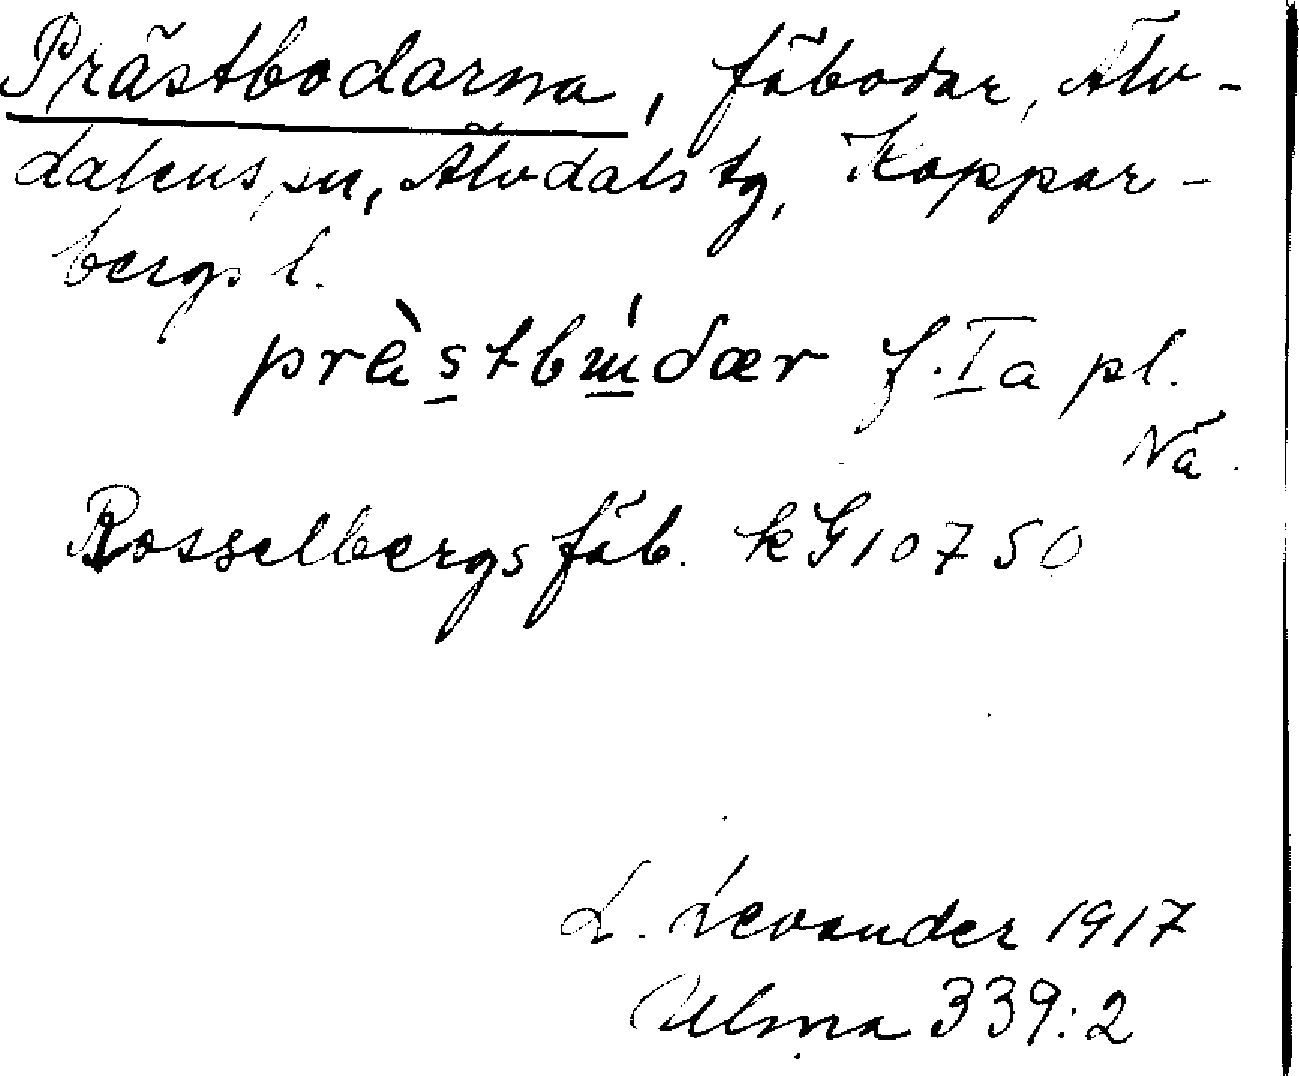 Prästbodarna, fäbodar, Älv-
dalens sn, Älvdals tg, Koppar-
bergs l.
prɛ̀stbɯ́dær f. Ia pl.
Nä.
Rosselbergs fäb. kG10750
L. Levander 1917
Ulma 339:2